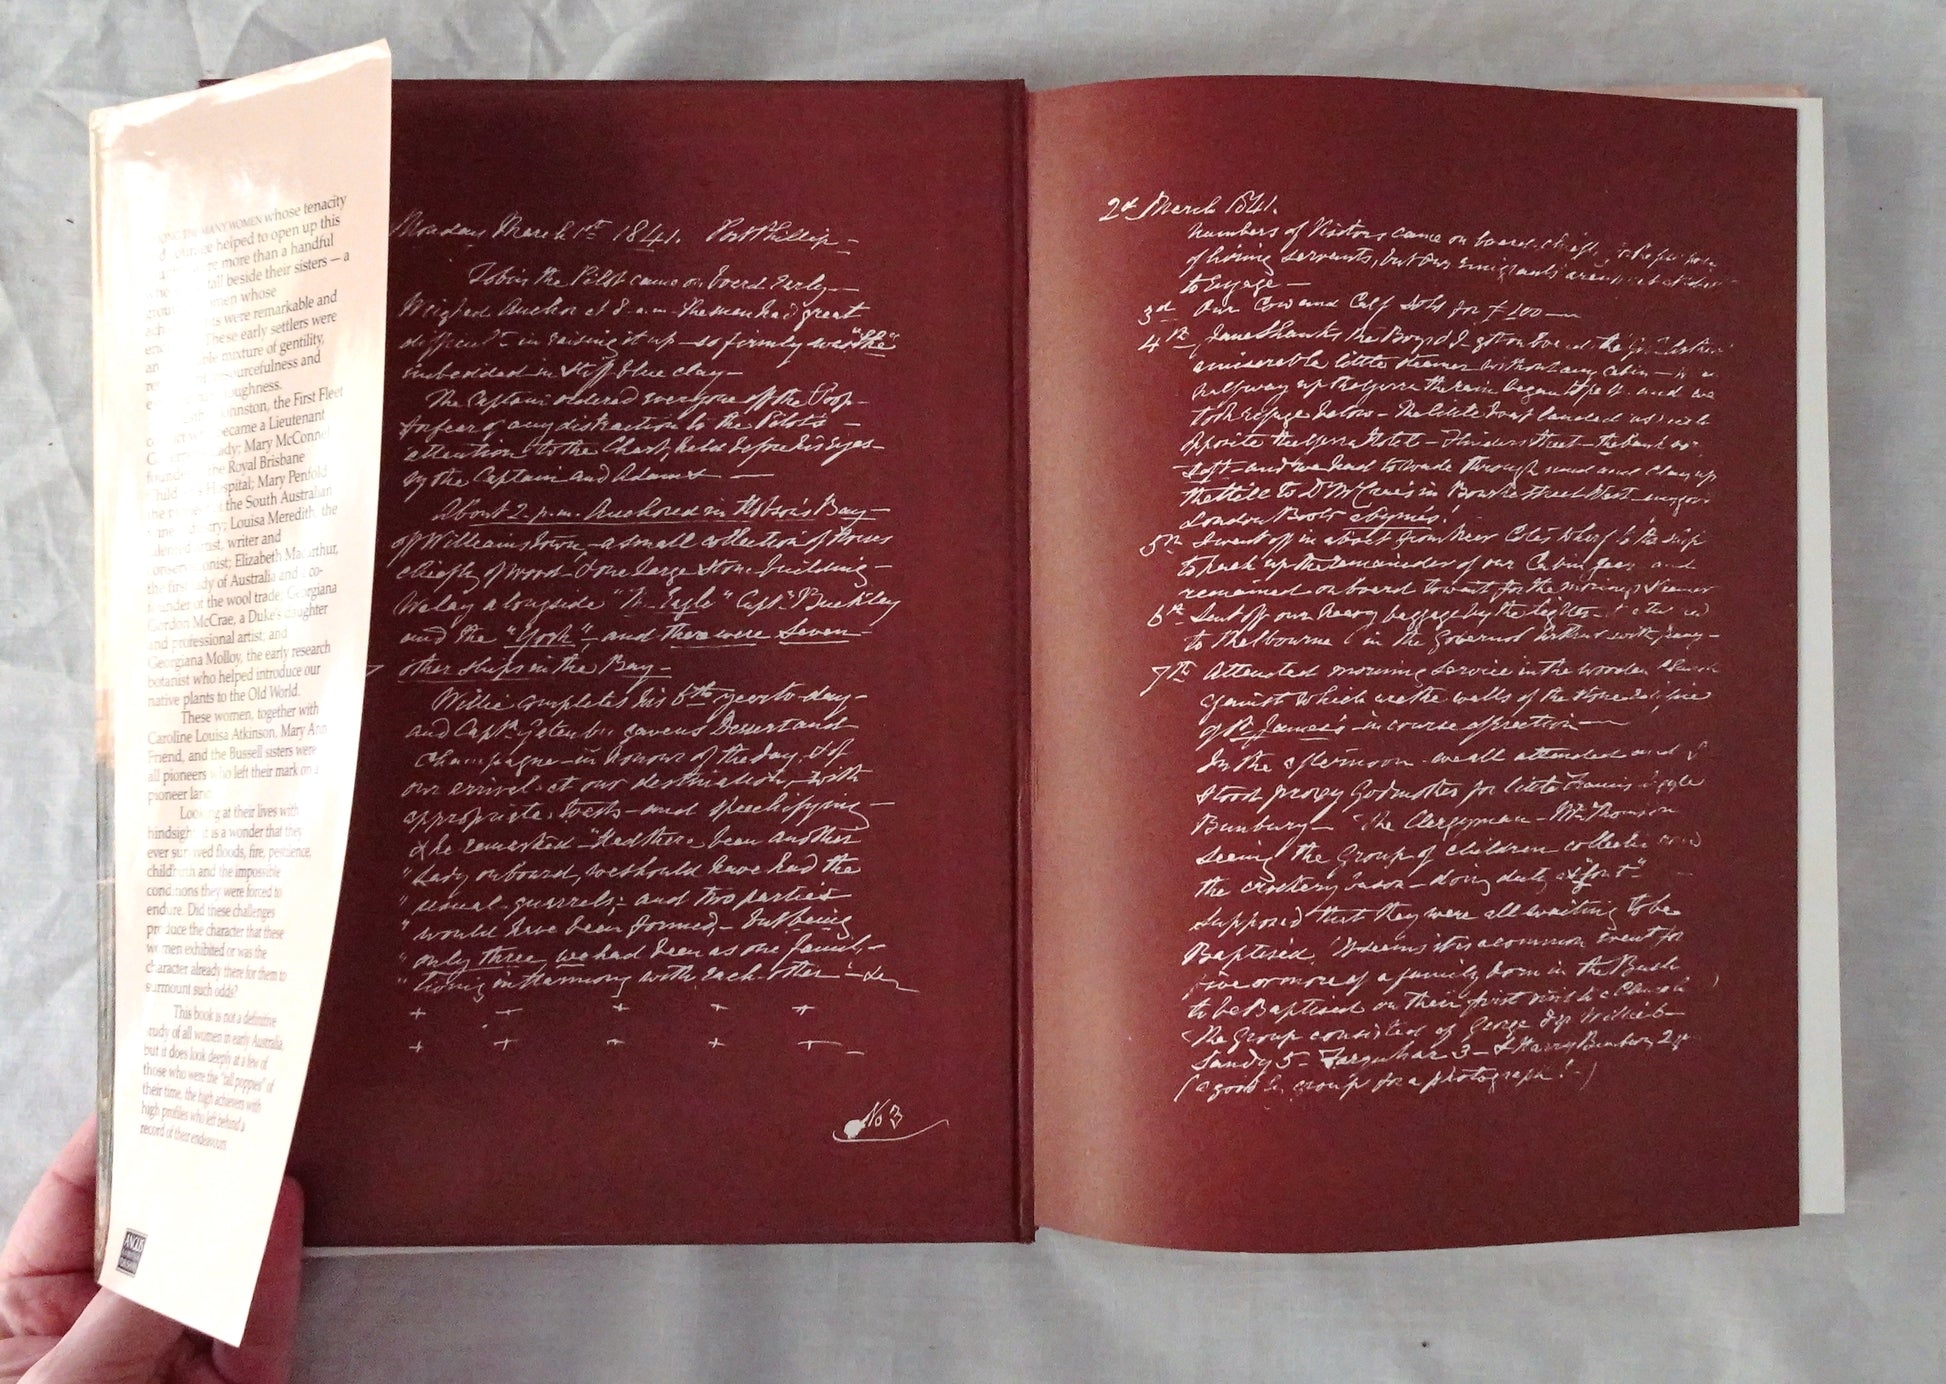 MANY WOMEN whose tenacity
helped to open up this
more than a handful
tall beside their sisters — a
women whose
were remarkable and
These early settlers were
mixture of gentility,
resourcefulness and
toughness.
Johnston, the First Fleet
became a Lieutenant
Lady; Mary McConnel
the Royal Brisbane
Hospital; Mary Penfold
the South Australian
Louisa Meredith, the
artist, writer and
Elizabeth Macarthur,
the first lady of Australia and a co-
founder of the wool trade; Georgiana
Gordon McCrae, a Duke's daughter
and professional artist; and
Georgiana Molloy, the early research
botanist who helped introduce our
native plants to the Old World.
These women, together with
Caroline Louisa Atkinson, Mary Ann
Friend, and the Bussell sisters were
all pioneers who left their mark on a
pioneer land.
Looking at their lives with
hindsight it is a wonder that they
ever survived floods, fire, pestilence,
childbirth and the impossible
conditions they were forced to
endure. Did these challenges
produce the character that these
women exhibited or was the
character already there for them to
surmount such odds?
This book is not a definitive
study of all women in early Australia,
but it does look deeply at a few of
those who were the "tall poppies" of
their time, the high achievers with
high profiles who left behind a
record of their endeavours.
ANGUS
Monday March 1st 1841. Port Phillip —
Tobin the Pilot came on board Early —
Weighed Anchor at 8 a.m. the men had great
difficulty in raising it up — so firmly was "the"
imbedded in stiff blue clay —
The Captain ordered everyone off the Poop —
for fear of any distraction to the Pilot's —
attention to the Chart, held before his eyes —
by the Captain and Adams —
About 2 p.m. Anchored in Hobson's Bay —
off Williamstown, — a small collection of Houses
chiefly of wood — & one large Stone building —
We lay alongside "Eagle" Captn. Buckley
and the "York" — and there were Seven
other ships in the Bay —
Willie completes his 6th year to-day —
and Captn. gave us Dessert and
champagne — in honor of the day, & of
our arrival at our destination, — with
appropriate toasts — and speechifying —
& he remarked — "Had there been another
"Lady on board, we should have had the
"usual quarrels; — and two parties
"would have been formed, — but being
"only three, we had been as one family —
"living in Harmony with each other" —
+ + + + +
+ + + + +
No 3
2d March 1841.
Numbers of Visitors came on board, chiefly for the purpose
of hiring servants, but our emigrants are
to engage —
3rd Our Cow and Calf sold for £100 —
4th Jane Shanks the Boys & I got on board the
a miserable little steamer without any cabin —
halfway up the Yarra the rain began to pelt and we
took refuge below — The little boat landed us
opposite the Yarra Hotel — Flinders Street — the bank
soft — and we had to wade through mud and clay up
the hill to Dr McCrae's in Bourke Street West —
London Boots abymés!
5th I went off in a boat from near Cole's Wharf to the ship
to pack up the remainder of our Cabin gear and
remained on board to wait for the morning's Steamer
6th Sent off our heavy baggage by the lighter —
to Melbourne in the Governor Arthur with
7th Attended morning service in the wooden Church
against which are the walls of the stone edifice
of St. James's — in course of erection —
In the afternoon — we all attended and I
stood proxy Godmother for little Francis
Bunbury — The Clergyman — Mr Thomson
seeing the group of children collected round
the crockery bason — doing duty as "font" —
supposed that they were all waiting to be
Baptised. It seems it is a common event for
five or more of a family born in the Bush
to be Baptised on their first visit to a Church
The Group consisted of George Willie 6 —
Sandy 5 — Farquhar 3 — & Harry Bunbury 2
(a good group for a photograph! —)